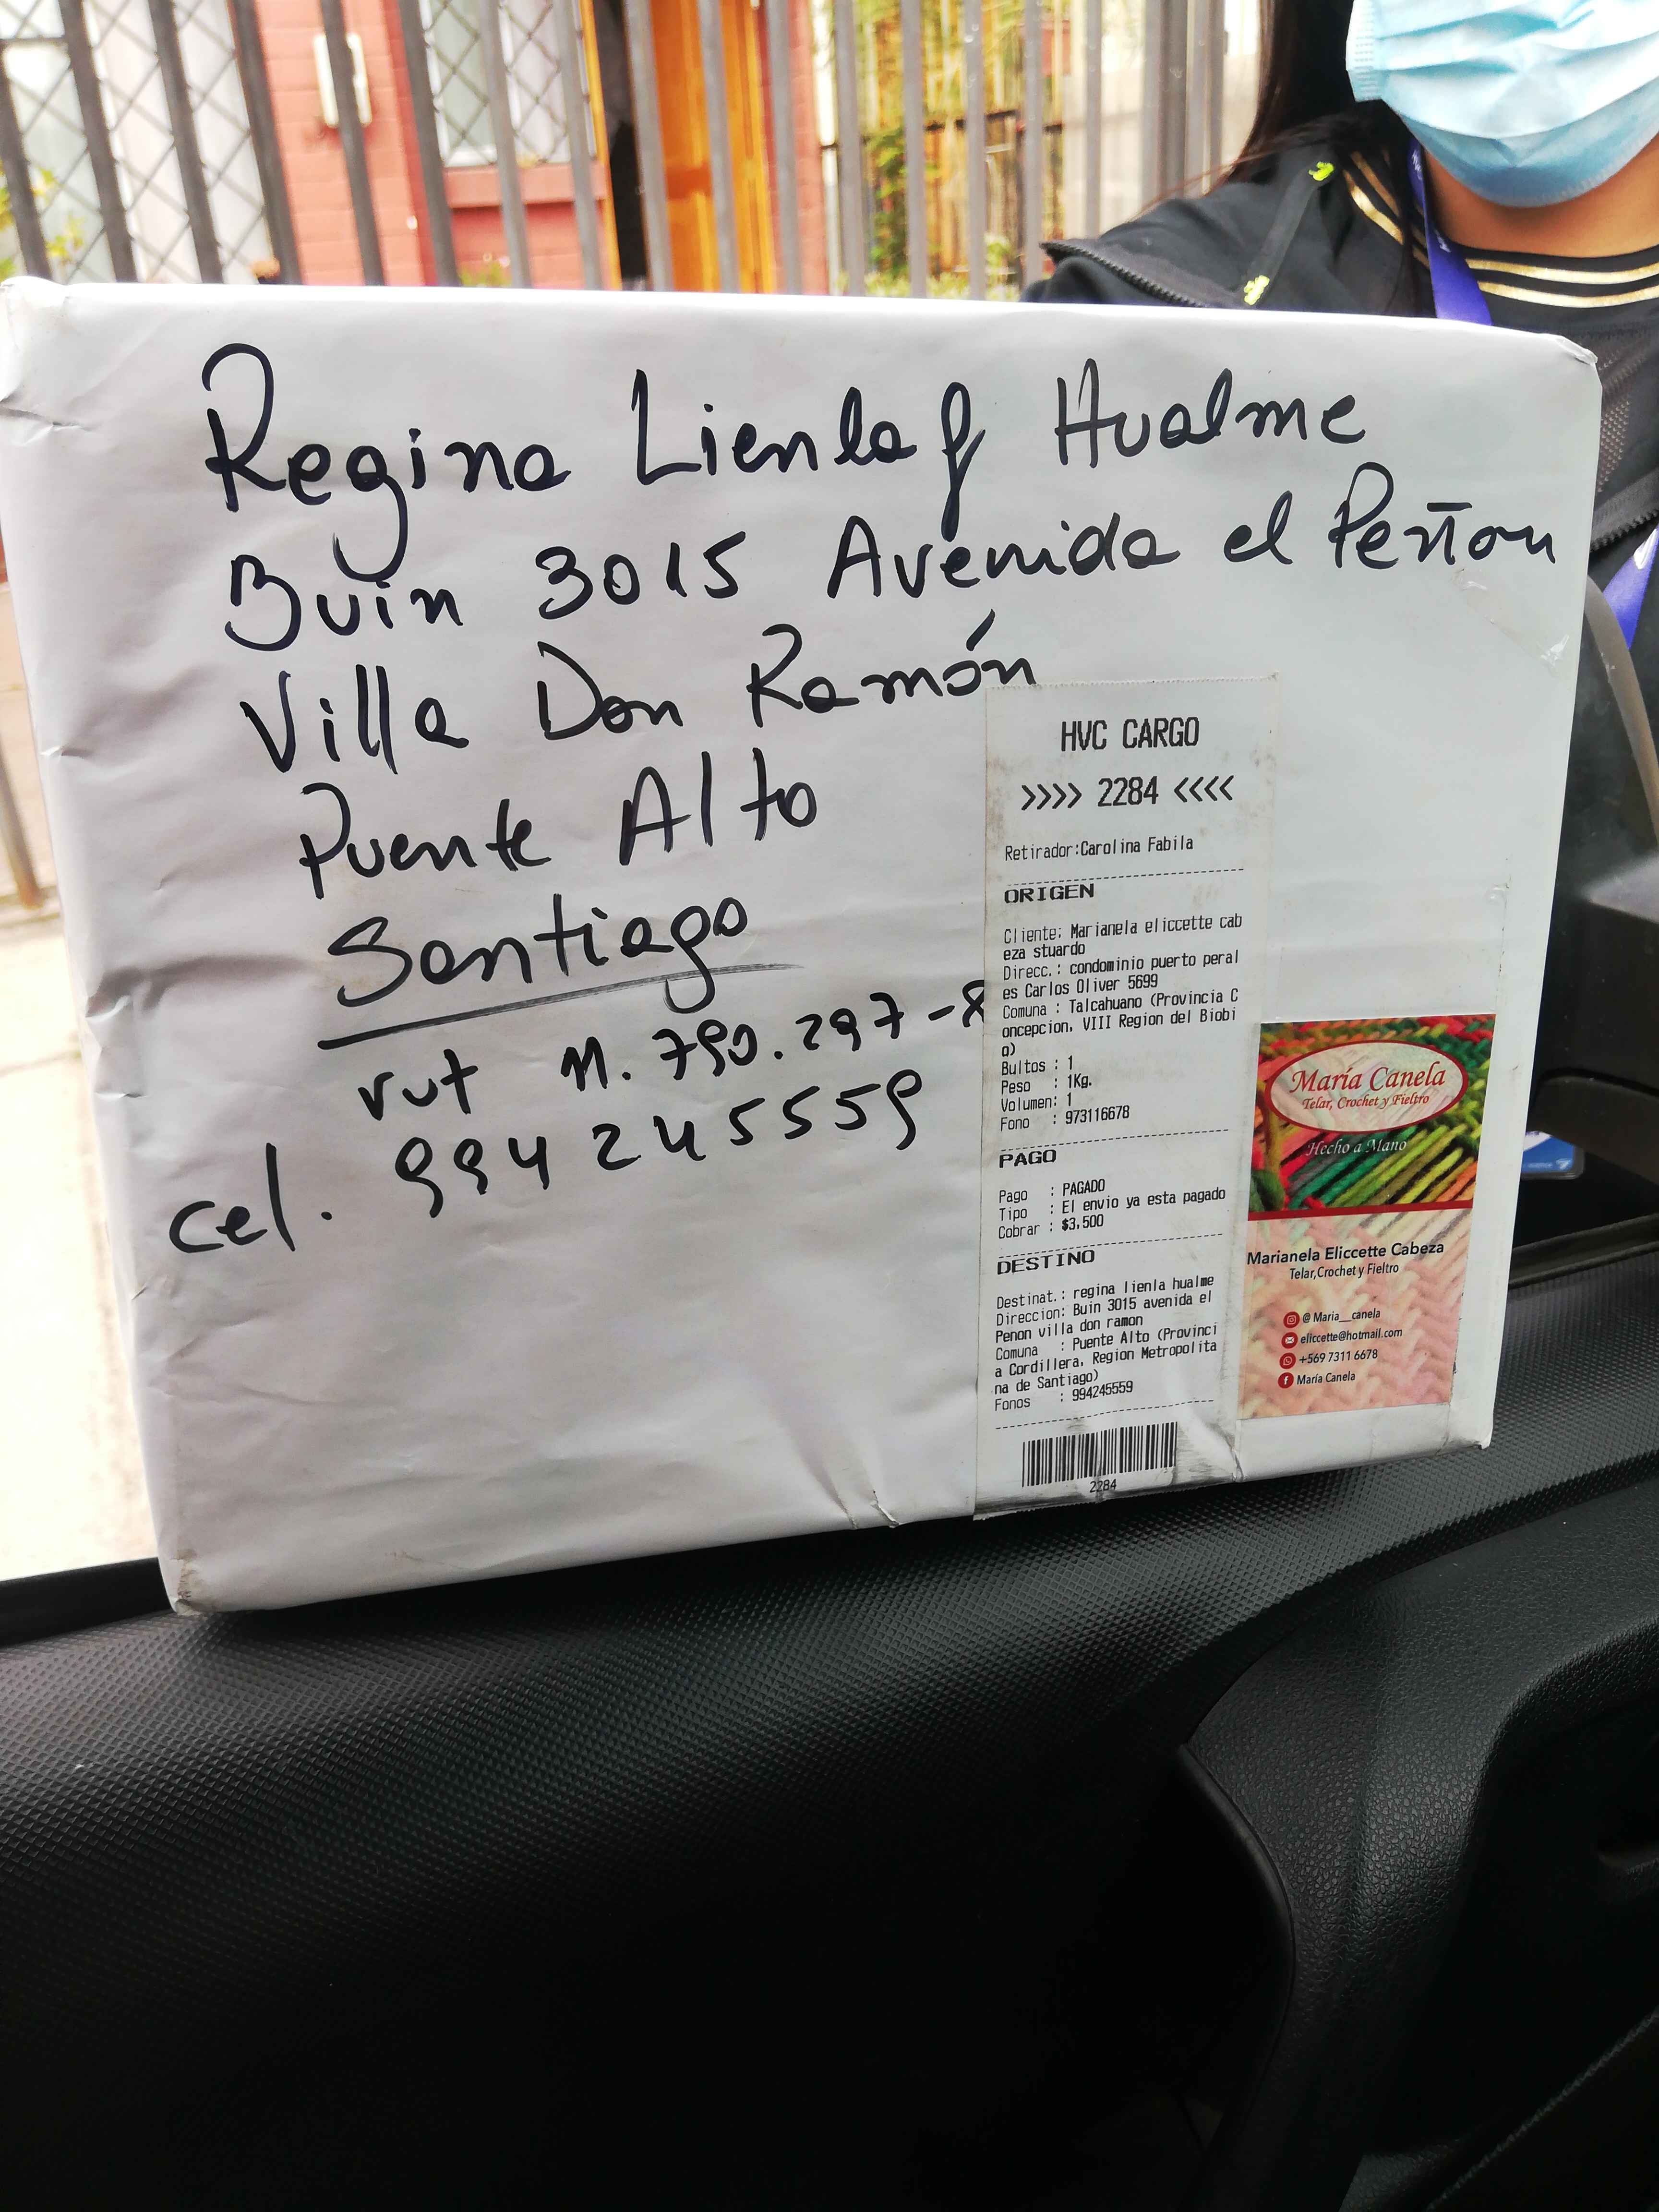 Regina Lienlaf Hualme
Buin 3015 Avenida el Peñon
Villa Don Ramón
Puente Alto
Santiago
rut 11.790.297-8
cel. 994245559
HVC CARGO
>>>> 2284 <<<<
Retirador:Carolina Fabila
ORIGEN
Cliente: Marianela eliccette cab
eza stuardo
Direcc.: condominio puerto peral
es Carlos Oliver 5699
Comuna : Talcahuano (Provincia C
oncepcion, VIII Region del Biobi
o)
Bultos : 1
Peso : 1Kg.
Volumen: 1
Fono : 973116678
PAGO
Pago : PAGADO
Tipo : El envio ya esta pagado
Cobrar : $3,500
DESTINO
Destinat.: regina lienla hualme
Direccion: Buin 3015 avenida el
Penon villa don ramon
Comuna : Puente Alto (Provinci
a Cordillera, Region Metropolita
na de Santiago)
Fonos : 994245559
2284
María Canela
Telar, Crochet y Fieltro
Hecho a Mano
Marianela Eliccette Cabeza
Telar,Crochet y Fieltro
@ Maria__canela
eliccette@hotmail.com
+569 7311 6678
María Canela